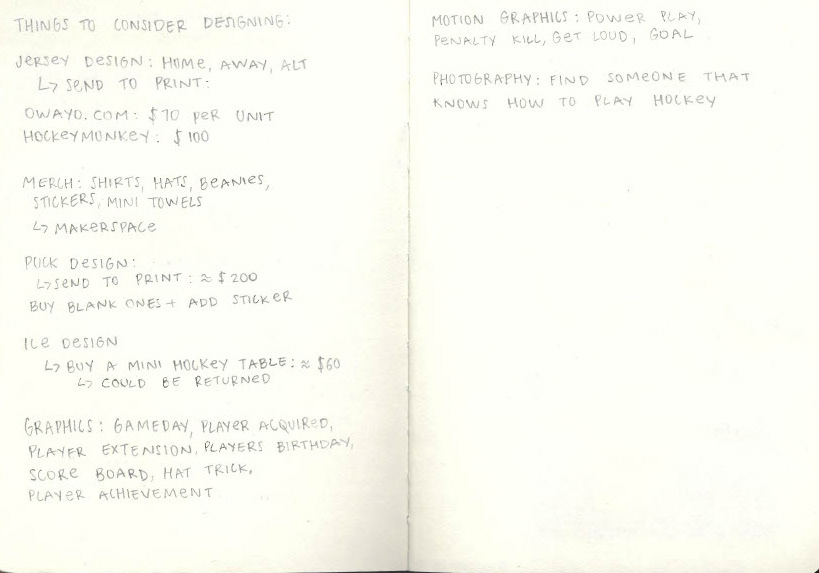 THINGS TO CONSIDER DESIGNING:
JERSEY DESIGN: HOME, AWAY, ALT
↳ SEND TO PRINT:
OWAYO.COM: $70 PER UNIT
HOCKEYMONKEY: $100
MERCH: SHIRTS, HATS, BEANIES,
STICKERS, MINI TOWELS
↳ MAKERSPACE
PUCK DESIGN:
↳ SEND TO PRINT: ≈ $200
BUY BLANK ONES + ADD STICKER
ICE DESIGN
↳ BUY A MINI HOCKEY TABLE: ≈ $60
↳ COULD BE RETURNED
GRAPHICS: GAMEDAY, PLAYER ACQUIRED,
PLAYER EXTENSION, PLAYERS BIRTHDAY,
SCORE BOARD, HAT TRICK,
PLAYER ACHIEVEMENT
MOTION GRAPHICS: POWER PLAY,
PENALTY KILL, GET LOUD, GOAL
PHOTOGRAPHY: FIND SOMEONE THAT
KNOWS HOW TO PLAY HOCKEY